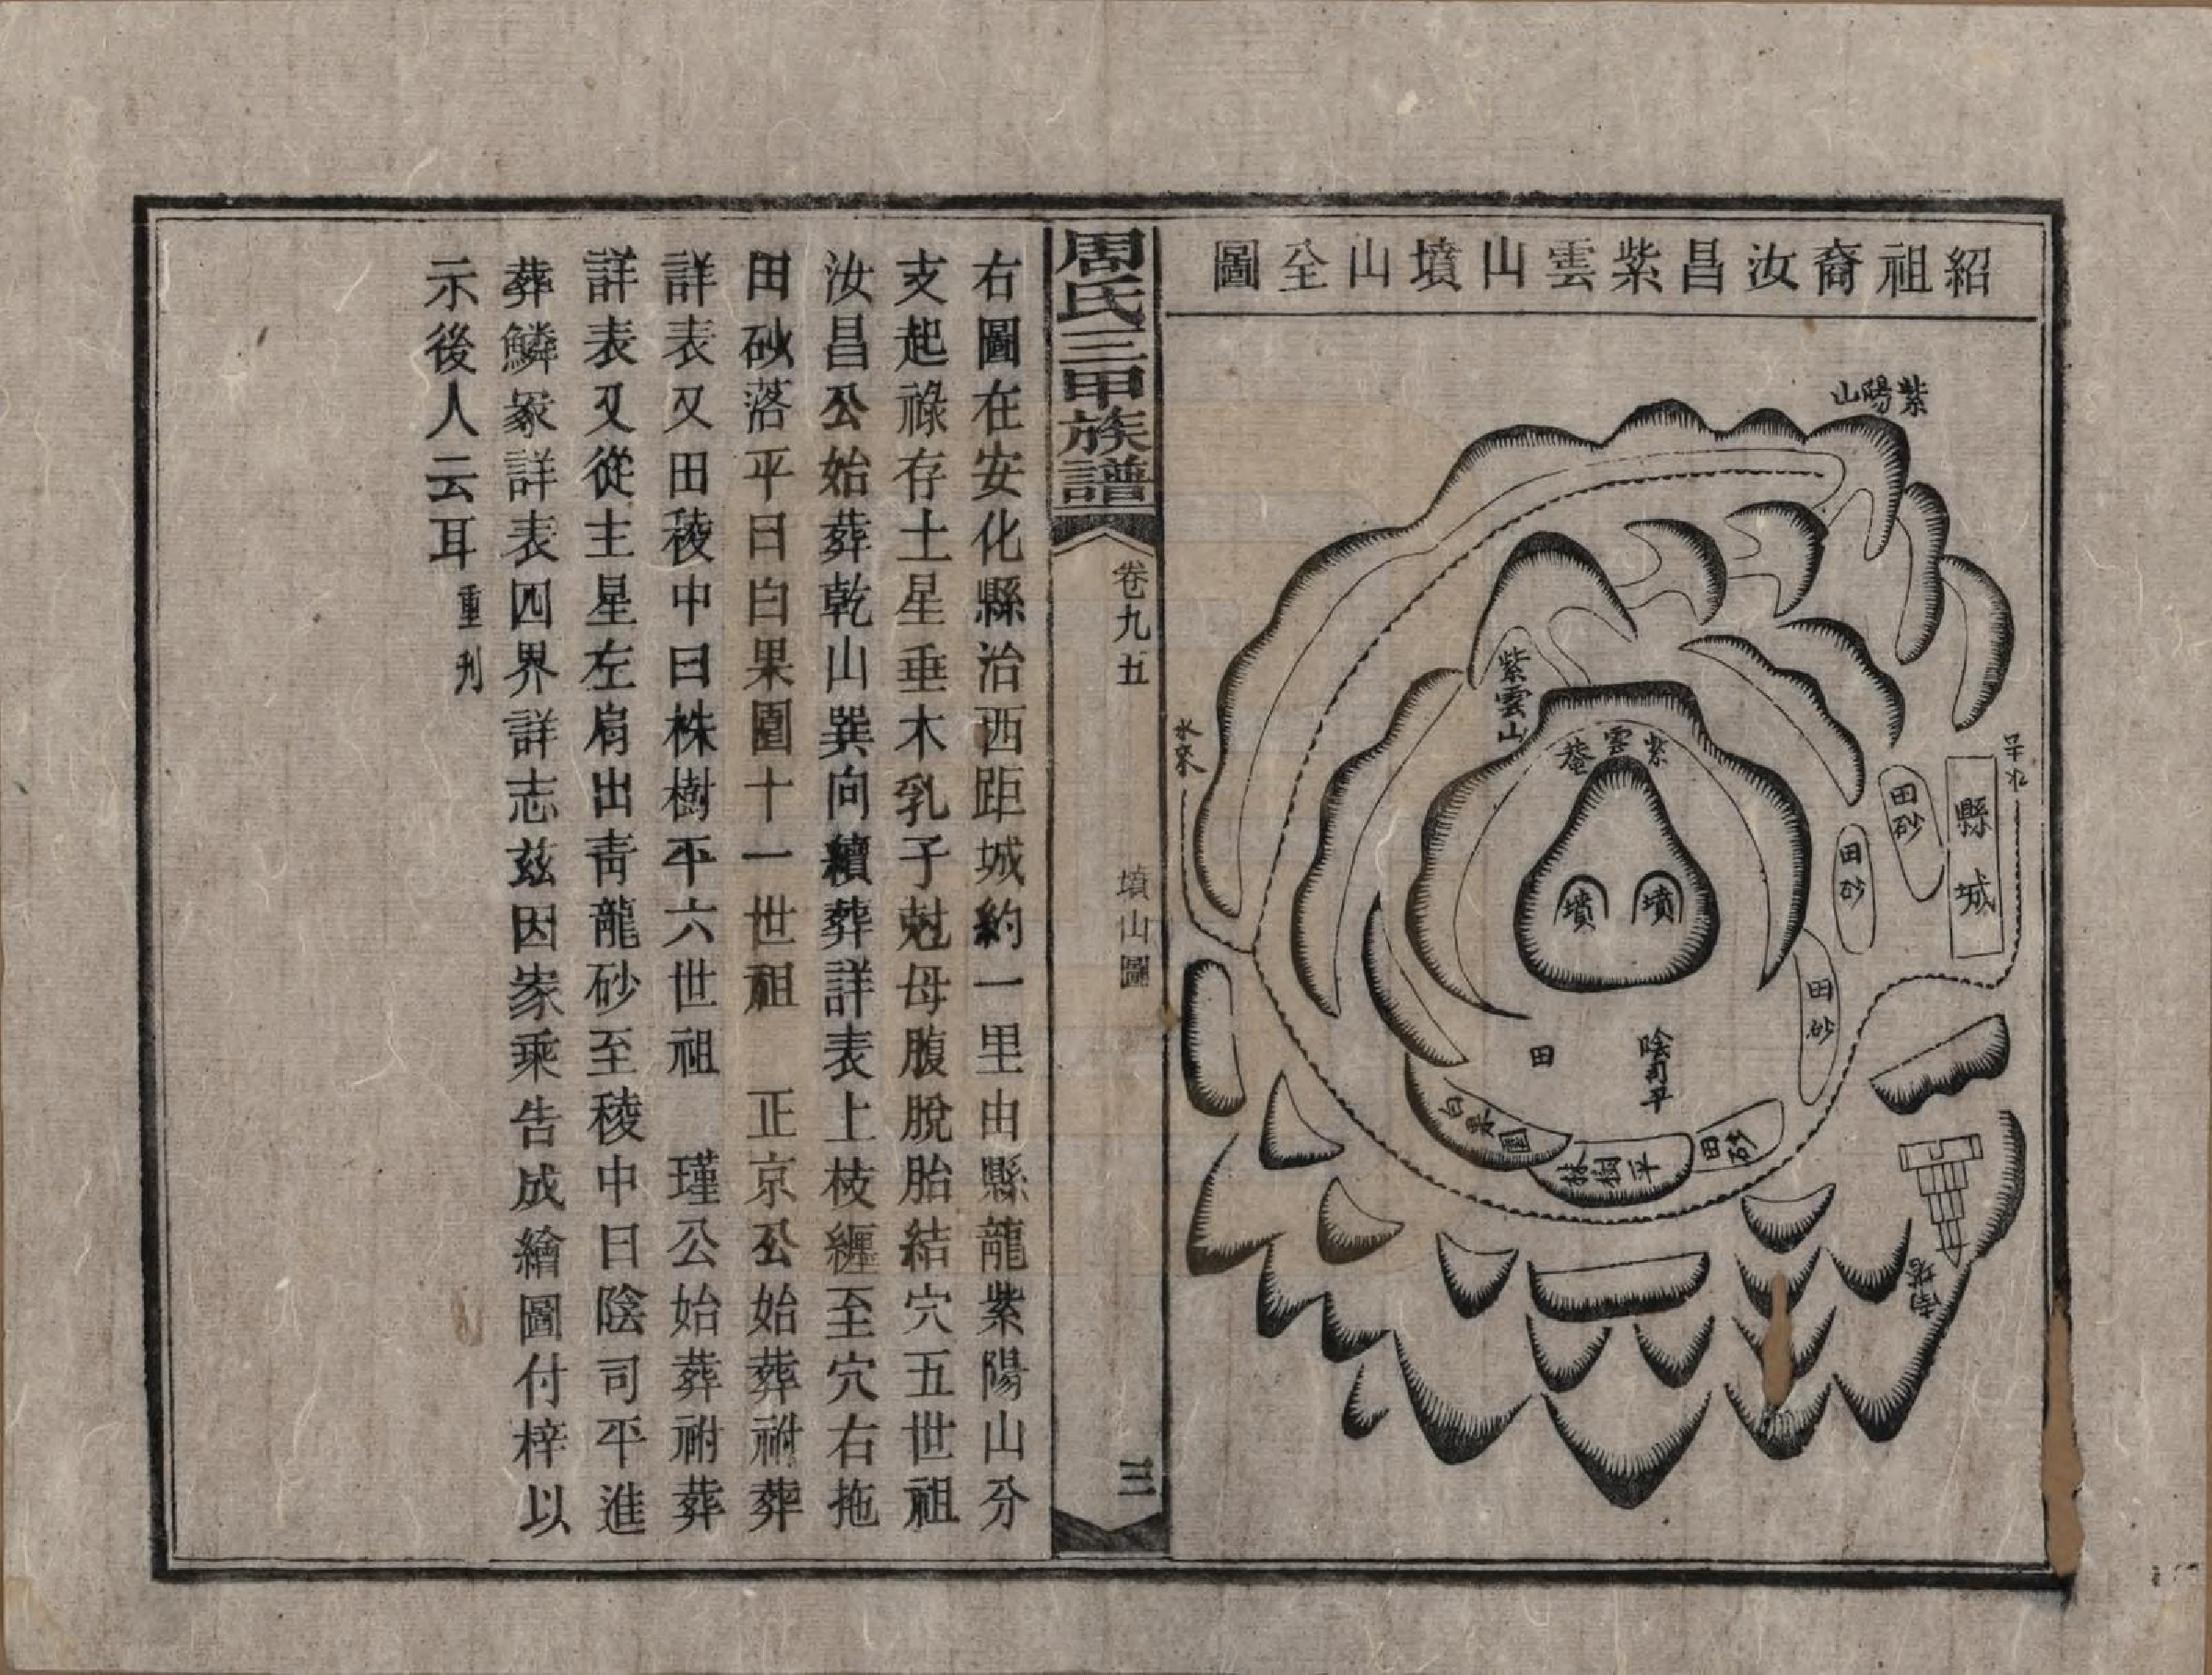 紹祖裔汝昌紫雲山墳山全圖
紫陽山
紫雲山
紫雲菴
墳
墳
水來
縣城
田砂
田砂
田砂
田砂
田
陰司平
白果園
株樹平
南塔
周氏三甲族譜
卷九五
墳山圖
三
右圖在安化縣治西距城約一里由縣龍紫陽山分
支起祿存土星垂木乳子尅母腹脫胎結穴五世祖
汝昌公始葬乾山巽向續葬詳表上枝纏至穴右拖
田砂落平曰白果園十一世祖 正京公始葬祔葬
詳表又田稜中曰株樹平六世祖 瑾公始葬祔葬
詳表又從主星左肩出靑龍砂至稜中曰陰司平進
葬鱗冢詳表四界詳志茲因家乘告成繪圖付梓以
示後人云耳重刋